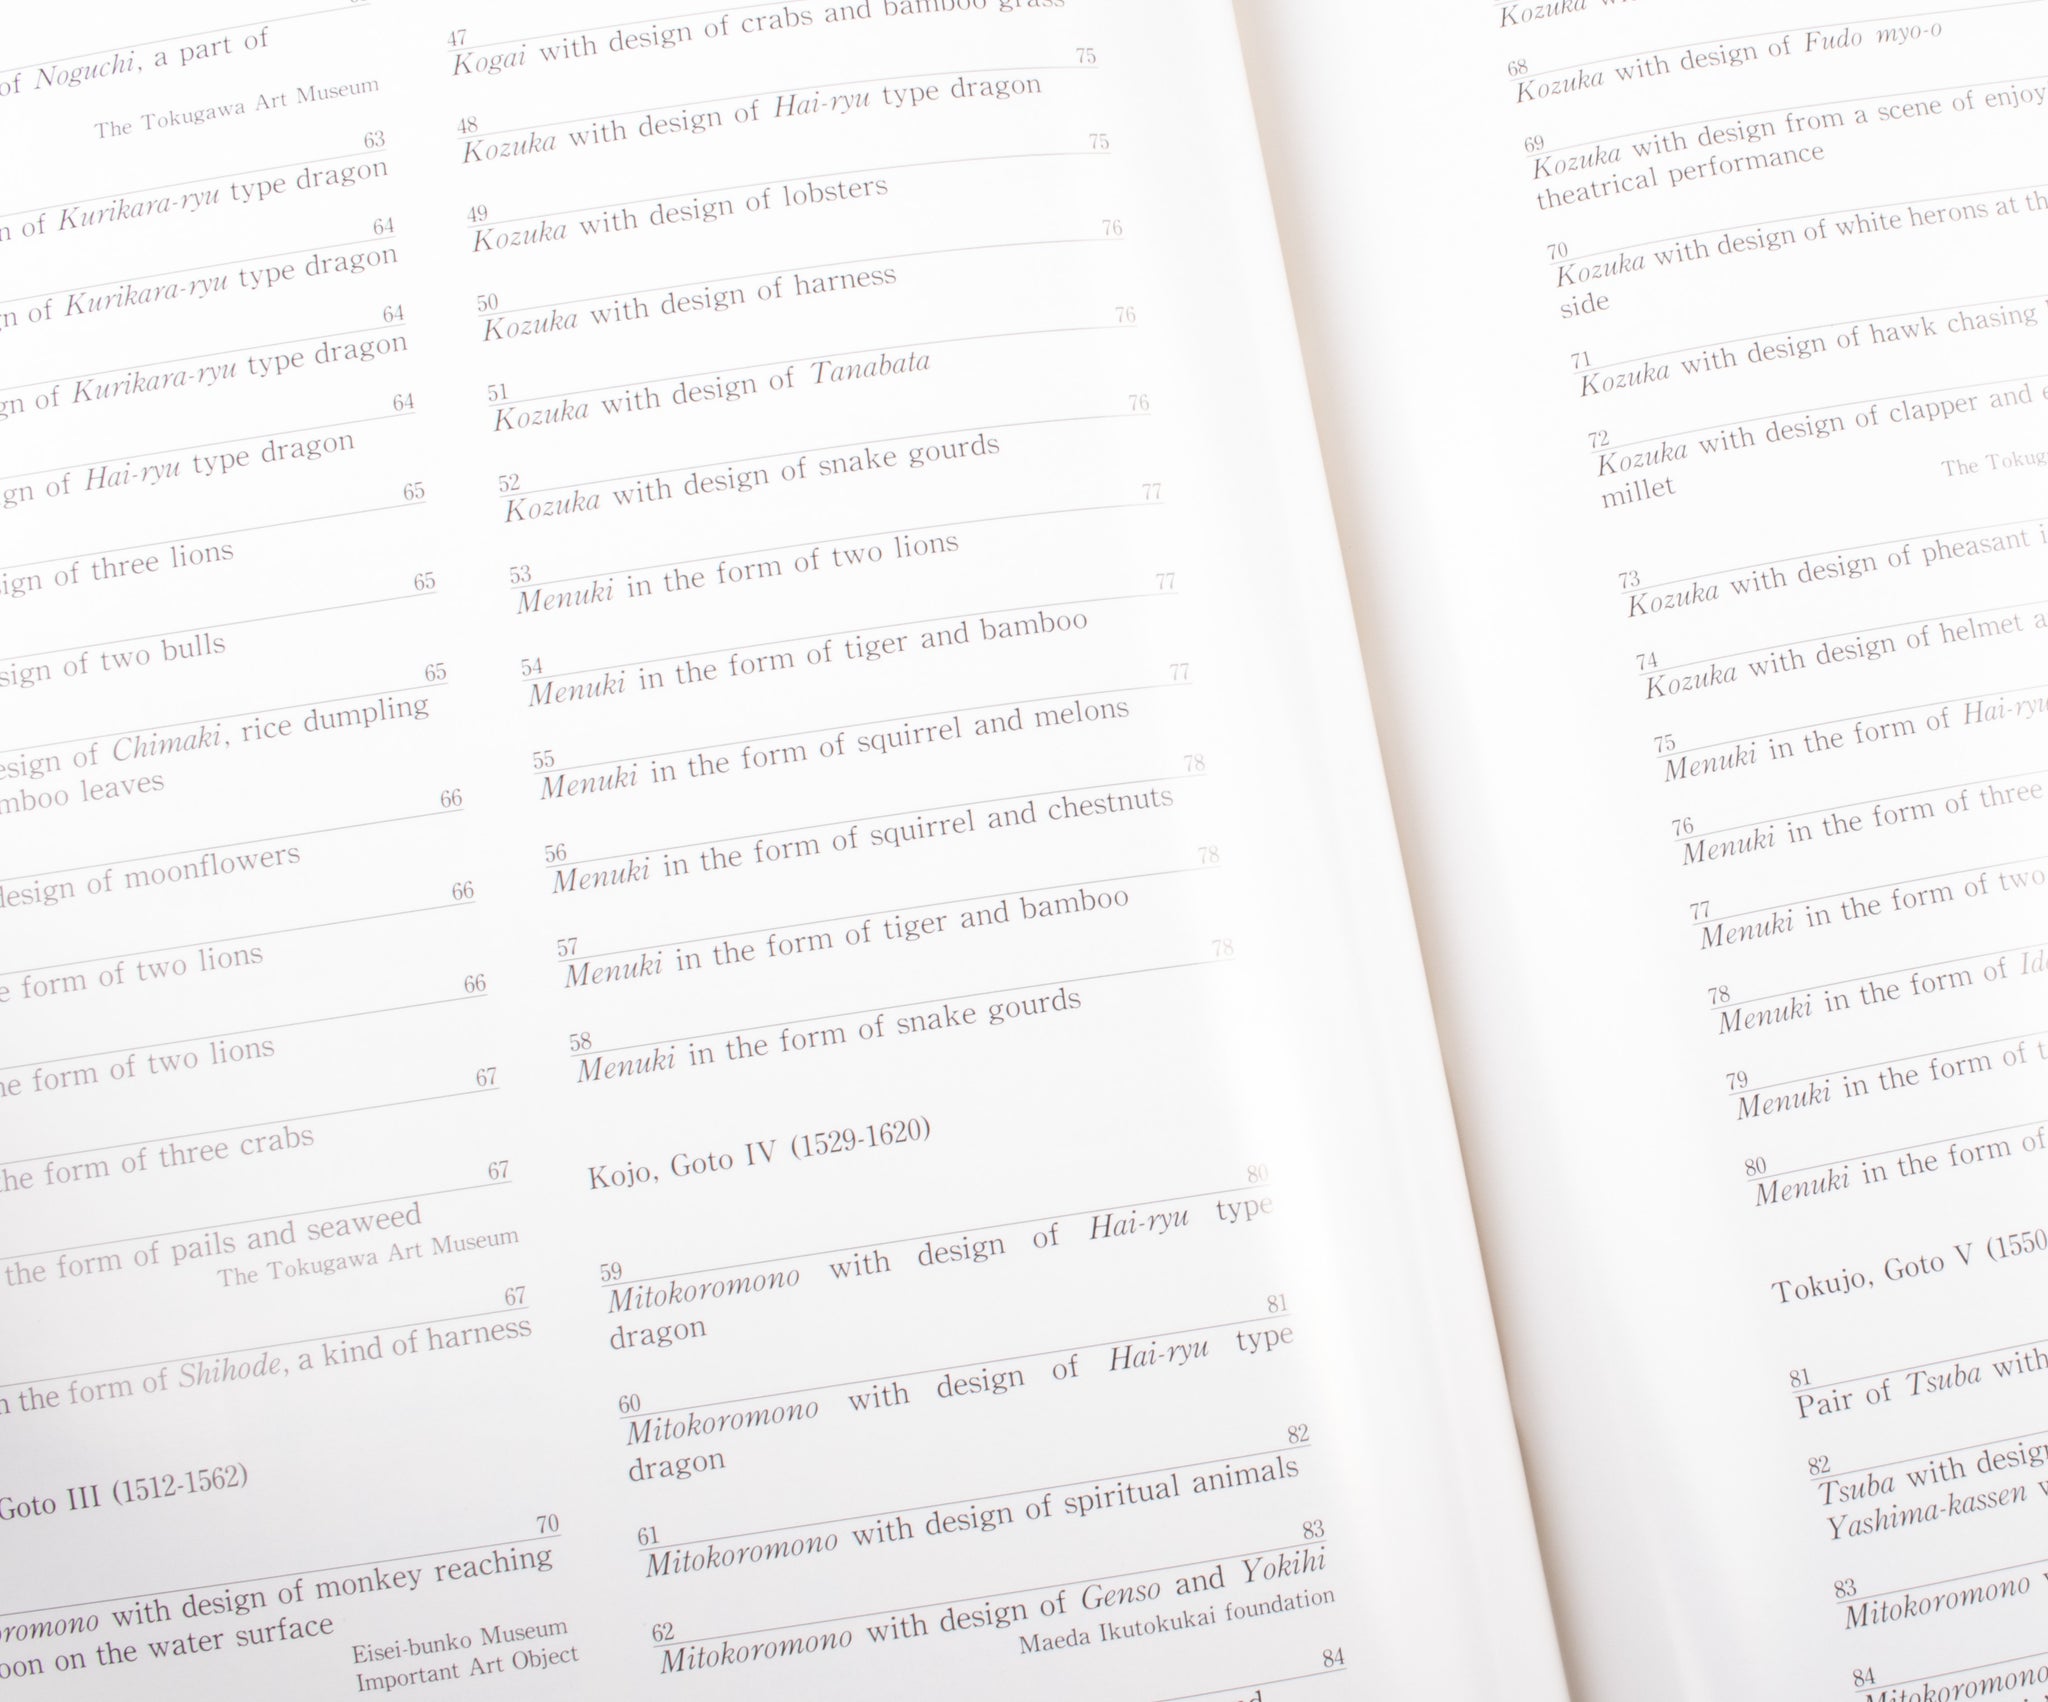 of Noguchi, a part of
The Tokugawa Art Museum
63
of Kurikara-ryu type dragon
64
of Kurikara-ryu type dragon
64
of Kurikara-ryu type dragon
64
of Hai-ryu type dragon
65
of three lions
65
of two bulls
65
of Chimaki, rice dumpling
leaves
66
design of moonflowers
66
form of two lions
66
form of two lions
67
the form of three crabs
67
the form of pails and seaweed
The Tokugawa Art Museum
67
the form of Shihode, a kind of harness
Goto III (1512-1562)
70
with design of monkey reaching
on the water surface
Eisei-bunko Museum
Important Art Object
47
Kogai with design of crabs and bamboo grass
75
48
Kozuka with design of Hai-ryu type dragon
75
49
Kozuka with design of lobsters
76
50
Kozuka with design of harness
76
51
Kozuka with design of Tanabata
76
52
Kozuka with design of snake gourds
77
53
Menuki in the form of two lions
77
54
Menuki in the form of tiger and bamboo
77
55
Menuki in the form of squirrel and melons
78
56
Menuki in the form of squirrel and chestnuts
78
57
Menuki in the form of tiger and bamboo
78
58
Menuki in the form of snake gourds
Kojo, Goto IV (1529-1620)
80
59
Mitokoromono with design of Hai-ryu type
dragon
81
60
Mitokoromono with design of Hai-ryu type
dragon
82
61
Mitokoromono with design of spiritual animals
83
62
Mitokoromono with design of Genso and Yokihi
Maeda Ikutokukai foundation
84
Kozuka
68
Kozuka with design of Fudo myo-o
69
Kozuka with design from a scene of enjoy
theatrical performance
70
Kozuka with design of white herons at
side
71
Kozuka with design of hawk chasing
72
Kozuka with design of clapper and
millet
The
73
Kozuka with design of pheasant
74
Kozuka with design of helmet
75
Menuki in the form of Hai-ryu
76
Menuki in the form of three
77
Menuki in the form of two
78
Menuki in the form of
79
Menuki in the form of
80
Menuki in the form of
Tokujo, Goto V (1550
81
Pair of Tsuba with
82
Tsuba with design
Yashima-kassen
83
Mitokoromono
84
Mitokoromono